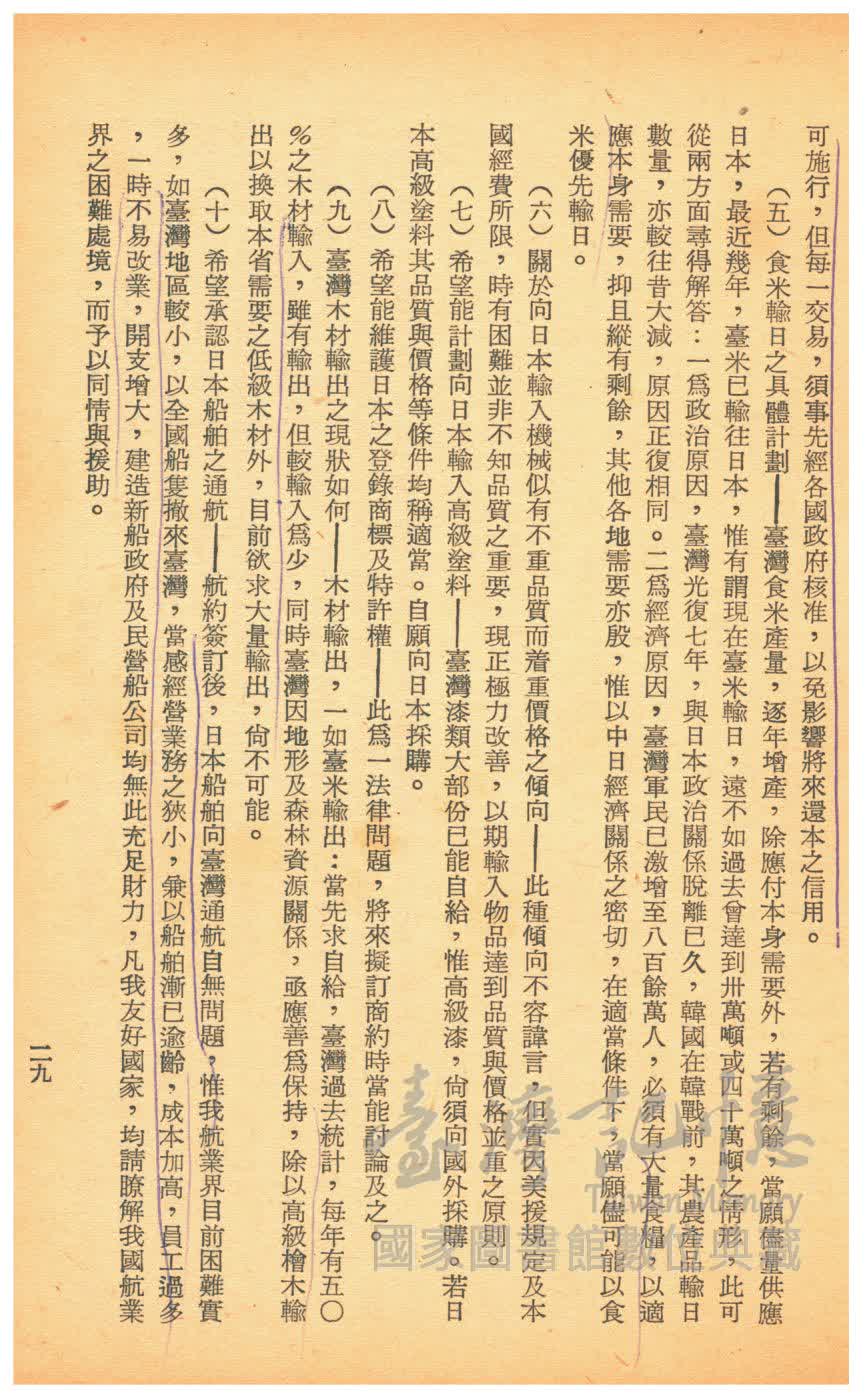 可施行，但每一交易，須事先經各國政府核准，以免影響將來還本之信用。
（五）食米輸日之具體計劃——臺灣食米產量，逐年增產，除應付本身需要外，若有剩餘，當願儘量供應
日本，最近幾年，臺米已輸往日本，惟有謂現在臺米輸日，遠不如過去曾達到卅萬噸或四十萬噸之情形，此可
從兩方面尋得解答：一爲政治原因，臺灣光復七年，與日本政治關係脫離已久，韓國在韓戰前，其農產品輸日
數量，亦較往昔大減，原因正復相同。二爲經濟原因，臺灣軍民已激增至八百餘萬人，必須有大量食糧，以適
應本身需要，抑且縱有剩餘，其他各地需要亦殷，惟以中日經濟關係之密切，在適當條件下，當願儘可能以食
米優先輸日。
（六）關於向日本輸入機械似有不重品質而着重價格之傾向——此種傾向不容諱言，但實因美援規定及本
國經費所限，時有困難並非不知品質之重要，現正極力改善，以期輸入物品達到品質與價格並重之原則。
（七）希望能計劃向日本輸入高級塗料——臺灣漆類大部份已能自給，惟高級漆，尙須向國外採購。若日
本高級塗料其品質與價格等條件均稱適當。自願向日本採購。
（八）希望能維護日本之登錄商標及特許權——此爲一法律問題，將來擬訂商約時當能討論及之。
（九）臺灣木材輸出之現狀如何——木材輸出，一如臺米輸出：當先求自給，臺灣過去統計，每年有五〇
%之木材輸入，雖有輸出，但較輸入爲少，同時臺灣因地形及森林資源關係，亟應善爲保持，除以高級檜木輸
出以換取本省需要之低級木材外，目前欲求大量輸出，尙不可能。
（十）希望承認日本船舶之通航——航約簽訂後，日本船舶向臺灣通航自無問題，惟我航業界目前困難實
多，如臺灣地區較小，以全國船隻撤來臺灣，當感經營業務之狹小，兼以船舶漸已逾齡，成本加高，員工過多
，一時不易改業，開支增大，建造新船政府及民營船公司均無此充足財力，凡我友好國家，均請瞭解我國航業
界之困難處境，而予以同情與援助。
二九
臺灣記憶
Taiwan Memory
國家圖書館數位典藏